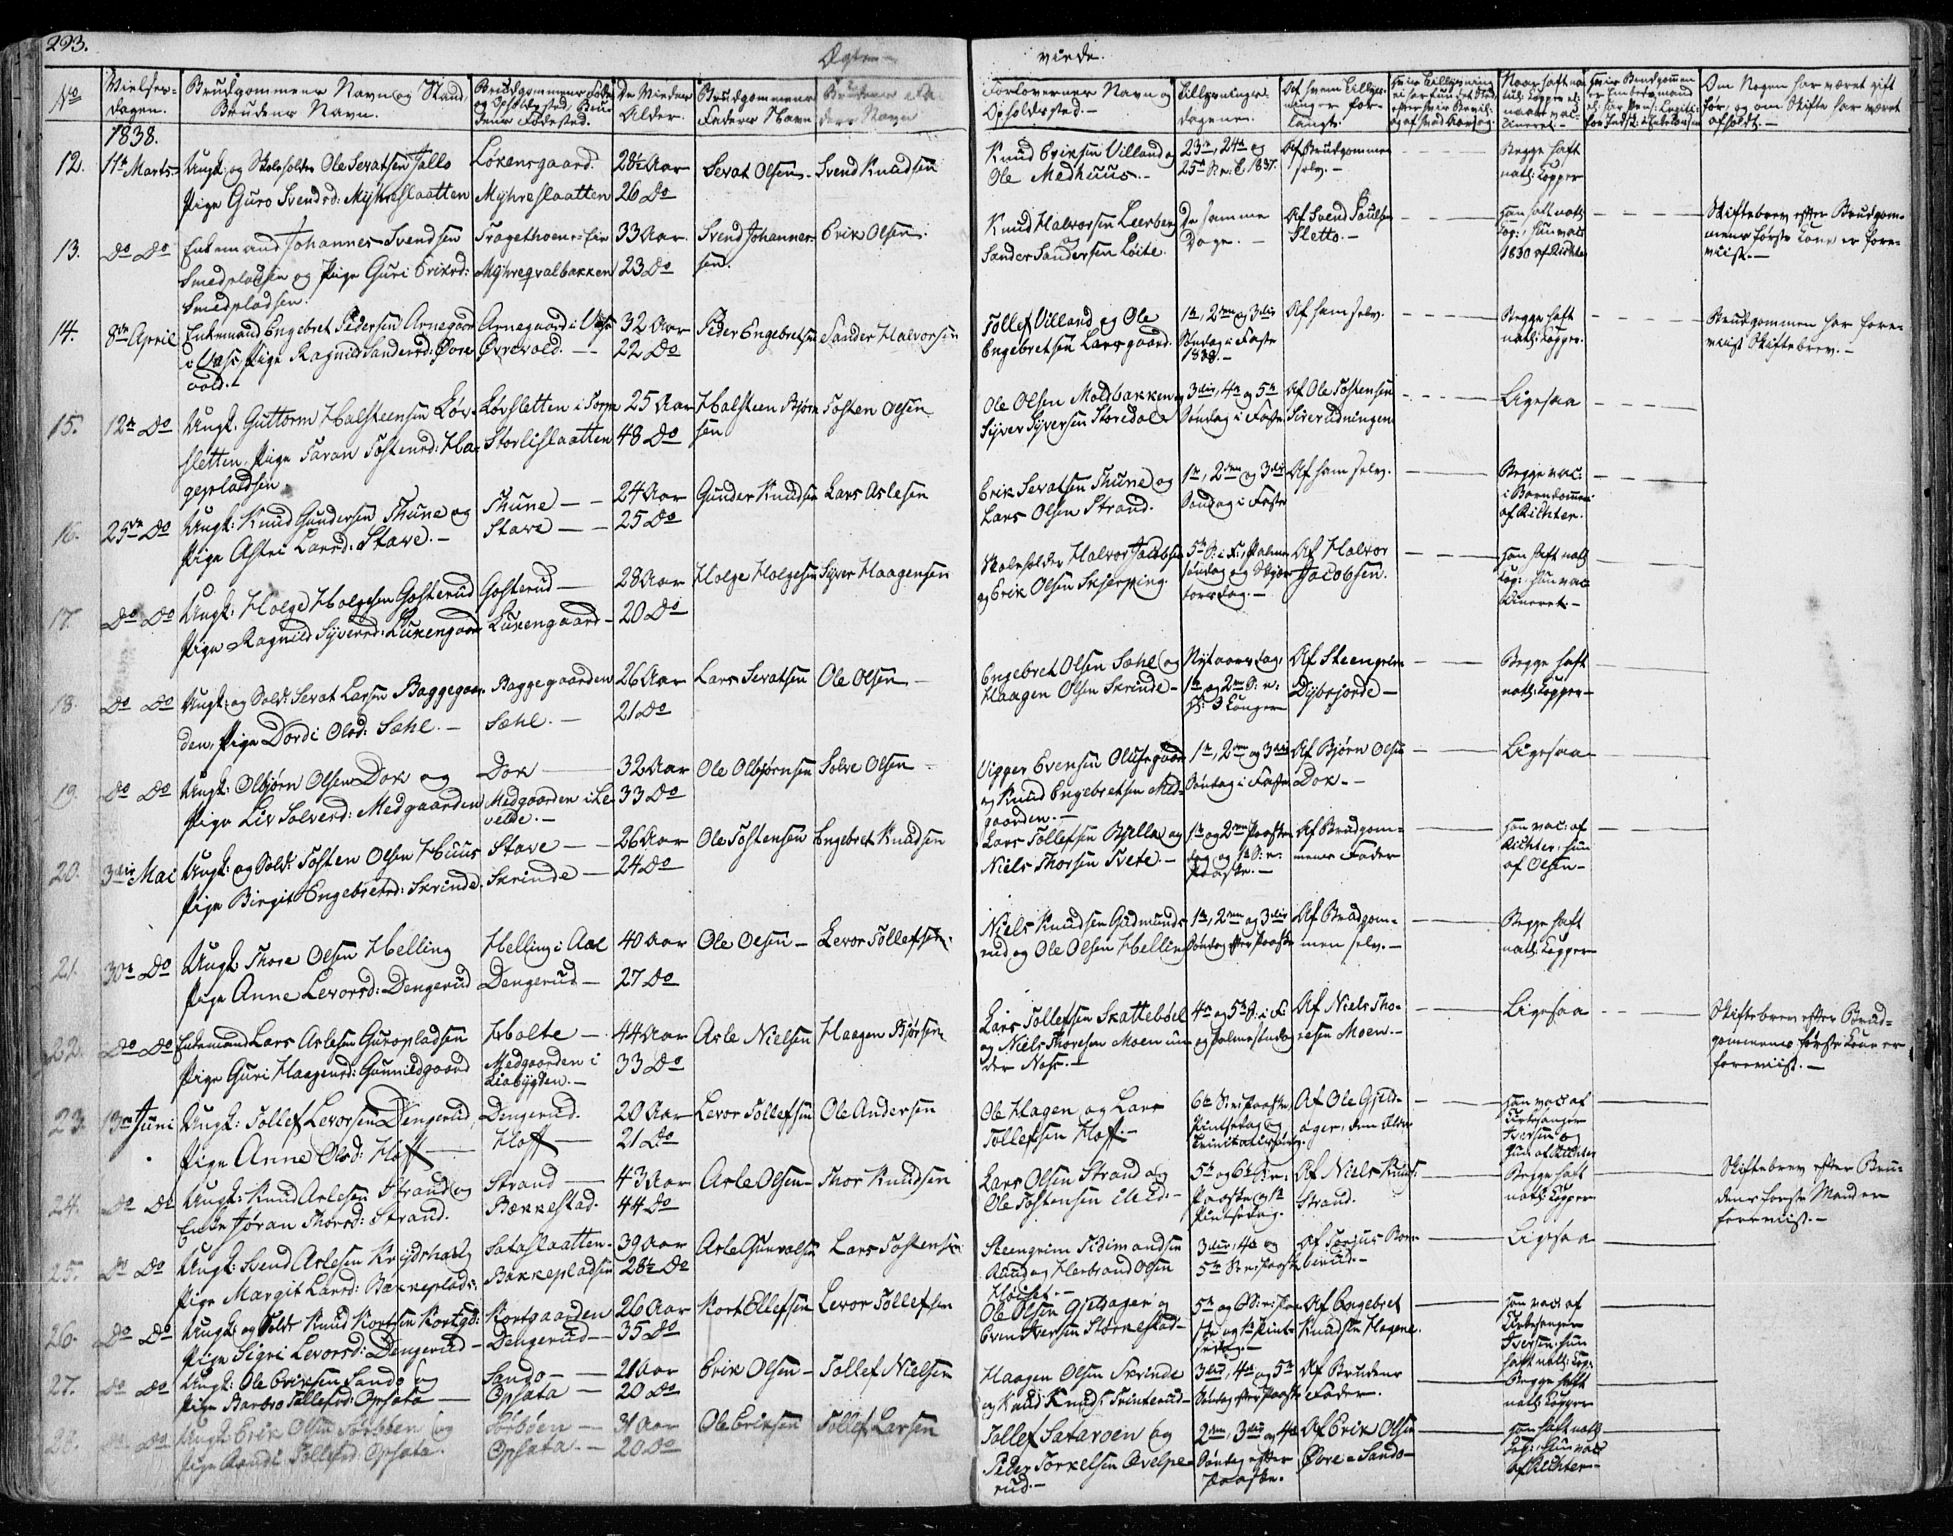 293.
Ægte-
viede.
No
Vielses-
dagen.
Brudgommens Navn og Stand
Brudens Navn.
Brudgommens Føde
og Opholdssted, Bru-
dens Fødested.
De Viedes
Alder.
Brudgommens
Faders Navn
Brudens Fa-
ders Navn
Forlovernes Navn og
Opholdssted.
Tillysnings-
dagene.
Af hvem Tillys-
ninger for-
langt.
Om Nogen har været gift
før, og om Skifte har været
afholdt.
1838.
12. 11te Marts
Ungk: og Skoleholder Ole Sevatsen Jallo
Pige Guro Svendsd: Myhreslaatten
Løkensgaard.
Myhreslaatten
28½ Aar
26 Do
Sevat Olsen
Svend Knudsen
Knud Eriksen Villand og
Ole Medhuus.
23de, 24de og
25de S: e: T. 1837.
Af Brudgommen
selv.
Begge haft
natl: Kopper
13. Do Do
Enkemand Johannes Svendsen
Smedpladsen og Pige Guri Eriksd:
Smedpladsen.
Myhreqvalbakken
33 Aar
23 Do
Svend Johannes-
sen.
Erik Olsen.
Knud Halvorsen Leerberg
Sander Sandersen Løite.
De samme
Dage.
Af Svend Poulsen
Sletto.
han haft natl:
Kop:, hun vac:
1830 af Richter
Skiftebrev efter Brudgom-
mens første Kone er fore-
viist.
14. 8de April
Enkemand Engebret Pedersen Arnegaard
i Aas, Pige Ragnild Sandersd: Øvre
vold.
Øvrevold.
32 Aar
22 Do
Peder Engebretsen
Sander Halvorsen
Tollef Villand og Ole
Engebretsen Larsgaard.
1ste, 2den og 3die
Søndag i Faste
1838.
Af ham selv.
Begge haft
natl: Kopper.
Brudgommen har fore-
viist Skiftebrev.
15. 12te Do
Ungk: Guttorm Halsteensen Løv-
sletten, Pige Taran Tostensd: Ha-
gepladsen
Løvsletten i Torpe
Storlislaatten
25 Aar
48 Do
Halsteen Bjørn-
sen
Tosten Olsen
Ole Olsen Moldbakken og
Syver Syversen Storedale
3die, 4de og 5te
Søndag i Faste
Af Ole Tostensen
Sverudningen
Ligesaa
16. 25de Do
Ungk: Knud Gundersen Thune og
Pige Astri Larsd: Stave.
Thune
Stave
24 Aar
25 Do
Gunder Knudsen
Lars Aslesen
Erik Sevatsen Thune og
Lars Olsen Strand.
1ste, 2den og 3die
Søndag i Faste
Af ham selv.
Begge vac:
i Barndommen
af Richter.
17. Do Do
Ungk: Holge Holgesen Gosterud
Pige Ragnild Syversd: Lurengaard
Gosterud
Lurengaard
28 Aar
20 Do
Holge Holgesen
Syver Haagensen
Skoleholder Halvor Jacobsen
og Erik Olsen Skjerping
5te S: i F:, Palme
søndag og Skjær
torsdag.
Af Halvor
Jacobsen.
han haft natl:
Kop:, hun vac-
cineret.
18. Do Do
Ungk: og Sold: Sevat Larsen Baggegaar-
den, Pige Dordi Olsd: Sæhl.
Baggegaarden
Sæhl.
26 Aar
21 Do
Lars Sevatsen
Ole Olsen
Engebret Olsen Sæhl og
Haagen Olsen Skrinde
Nytaarsdag,
1ste og 2den S: e:
H: 3 Konger
Af Steengrim
Dybsjorde
Begge haft
natl: Kopper
19. Do Do
Ungk: Olbjørn Olsen Dok og
Pige Liv Solvesd: Medgaarden
Dok
Medgaarden i Le-
velde.
32 Aar
33 Do
Ole Olbjørnsen
Solve Olsen
Vigger Evensen Olufsgaard
og Knud Engebretsen Med-
gaarden.
1ste, 2den og 3die
Søndag i Faste
Af Bjørn Olsen
Dok.
Ligesaa
20. 3die Mai
Ungk: og Sold: Tosten Olsen Huus
Pige Birgit Engebretsd: Skrinde.
Stave
Skrinde
26 Aar
24 Do
Ole Tostensen
Engebret Knudsen
Lars Tollefsen Bjella og
Niels Thorsen Tvete.
1ste og 2den Paaske
dag og 1ste S: e:
Paaske.
Af Brudgom-
mens Fader
han vac: af
Richter, hun
af Olsen
21. 30te Do
Ungk: Thore Olsen Helling
Pige Anne Levorsd: Dengerud
Helling i Aal
Dengerud
40 Aar
27 Do
Ole Olsen
Levor Tollefsen.
Niels Knudsen Gudmunds-
rud og Ole Olsen Helling
1ste, 2den og 3die
Søndag efter Paaske
Af Brudgom-
men selv.
Begge haft
natl: Kopper
22. Do Do
Enkemand Lars Aslesen Guropladsen
Pige Guri Haagensd: Gunnildgaard
Holte
Medgaarden i
Liabygden.
44 Aar
33 Do
Asle Nielsen
Haagen Bjørsen
Lars Tollefsen Skattebøl
og Niels Thoresen Moen un-
der Næs.
4de og 5te S: i F:
og Palmesøndag
Af Niels Tho-
resen Moen.
Ligesaa
Skiftebrev efter Brud-
gommens første Kone er
foreviist.
23. 13de Juni
Ungk: Tollef Levorsen Dengerud,
Pige Anne Olsd: Hoff
Dengerud.
Hoff
20 Aar
21 Do
Levor Tollefsen
Ole Andersen
Ole Hagen og Lars
Tollefsen Hoff.
6te S: e: Paaske,
Pintsedag og
Trinitatissønd:
Af Ole Gjeld-
ager, den Ældre
han vac: af
Kirkesanger
Iversen og
hun af Richter
24. Do Do
Ungk: Knud Aslesen Strand og
Enke Jøran Thorsd: Strand.
Strand
Bækkestad.
43 Aar
44 Do
Asle Olsen
Thor Knudsen
Lars Olsen Strand og
Ole Tostensen Lied.
5te og 6te S: e:
Paaske og 1ste
Pintsedag.
Af Niels Knuds:
Strand.
Begge haft
natl: Kopper
Skiftebrev efter Bru-
dens første Mand er
foreviist.
25. Do Do
Ungk: Svend Aslesen
Pige Margit Larsd: Bakkeplads:
Sataslaatten.
Bakkepladsen
39 Aar
28½ Do
Asle Gunvalsen
Lars Tostensen
Steengrim Tidimandsen
Ruud og Herbrand Olsen
3die, 4de og
5te S: e: Paaske
Ligesaa
26. Do Do
Ungk: og Sold: Knud Kortsen Kortgd:
Pige Sigri Levorsd: Dengerud
Kortgaarden
Dengerud
26 Aar
35 Do
Kort Ellefsen
Levor Tollefsen
Ole Olsen Gjeldager og
Even Iversen Storkestad
Af Engebret
Knudsen Hagene.
han vac: af
Kirkesanger
Iversen, hun
haft natl: Kop:
27. Do Do
Ungk: Ole Eriksen Sando og
Pige Barbro Tollefsd: Opsata
Sando
Opsata
21 Aar
20 Do
Erik Olsen
Tollef Nielsen
Haagen Olsen Skrinde
og Knud Knuds: Trinterud
3die, 4de og 5te
Søndag efter Paaske
Af Brudens
Fader.
Begge haft
natl: Kopper
28. Do Do
Ungk: Erik Olsen Sørbøen og
Pige Randi Tollefsd: Opsata.
Sørbøen
Opsata.
31 Aar
20 Do
Ole Eriksen
Tollef Larsen
Tollef Sataroen og
Peder Torkelsen Qvelpe-
rud.
2den, 3die og 4de
Søndag efter
Paaske.
Af Erik Olsen
Øvre-Sando
han haft natl:
Kop:, hun vac:
af Richter